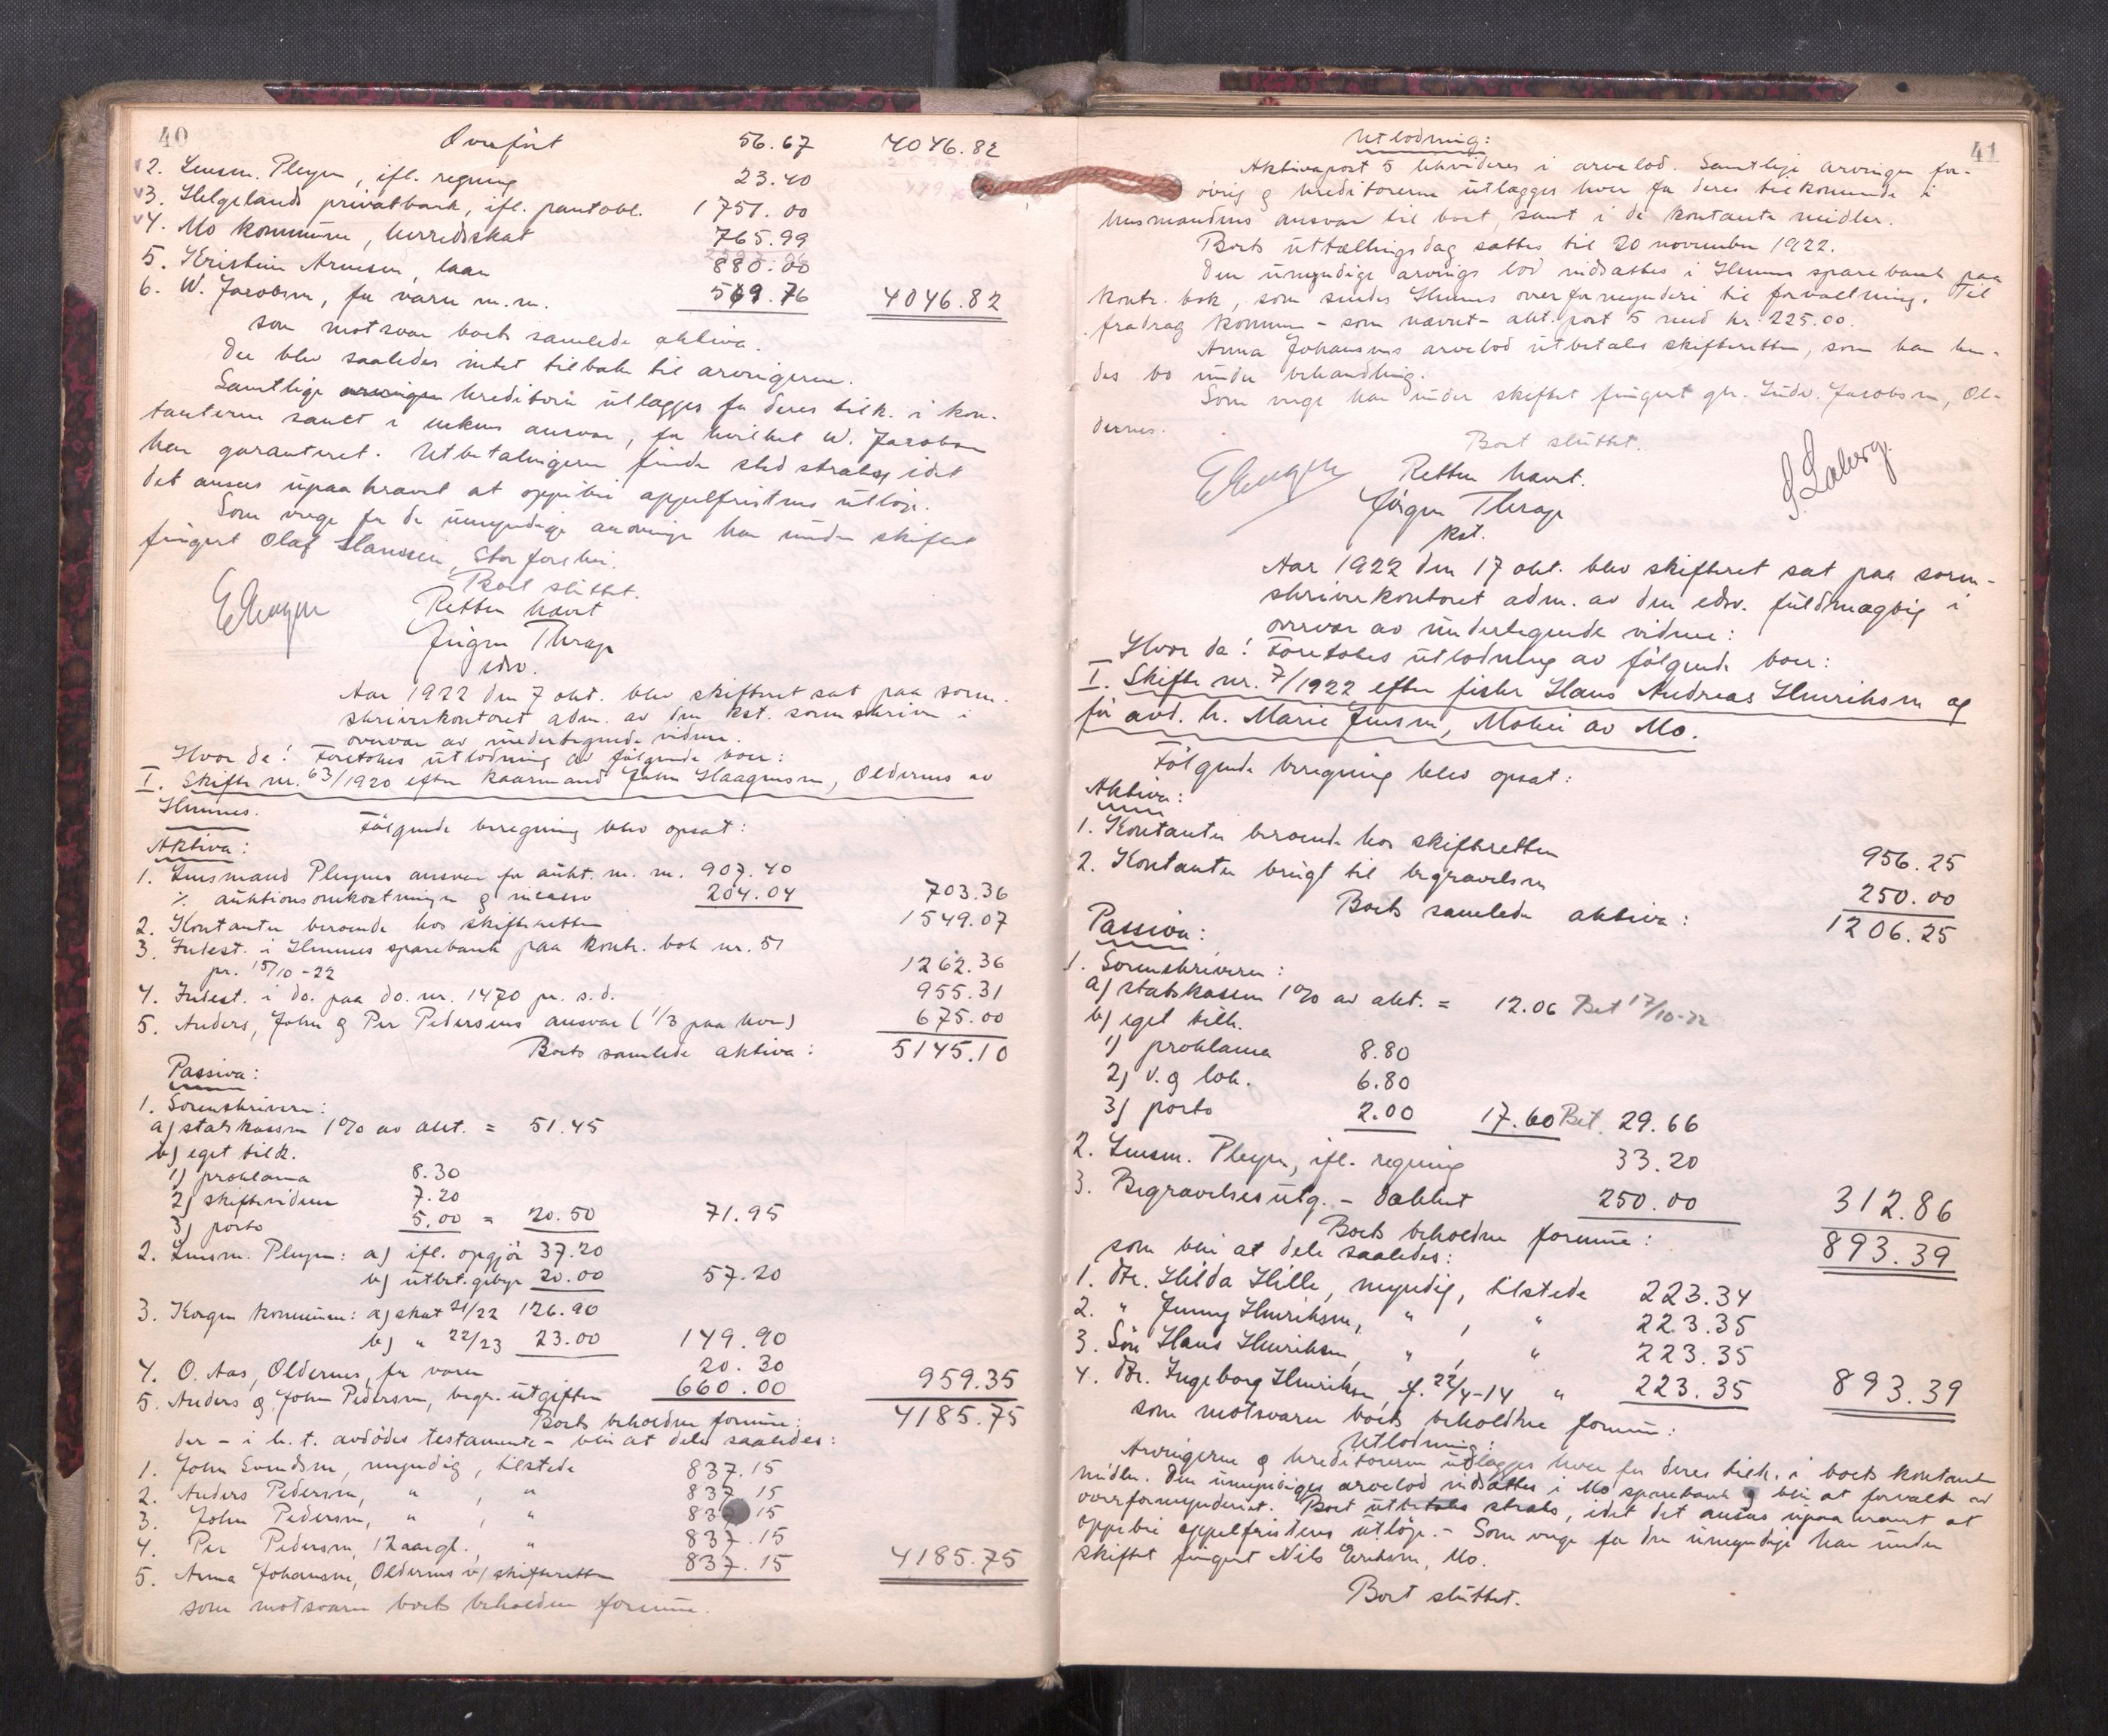 40
Overført 56.67 4046.82
2. Lensm. Pleym, ifl. regning 23.40
3. Helgelands privatbank, ifl. pantobl. 1751.00
4. Mo kommune, herredsskat 765.99
5. Kristine Arnesen, laan 880.00
6. W. Jacobsen, for varer m.m. 569.76 4046.82
som motsvarer boets samlede aktiva.
Der blev saaledes intet tilbake til arvingerne.
Samtlige arvinger kreditorer utlægges for deres tilk. i kon-
tanterne samt i enkens ansvar, for hvilket W. Jacobsen
har garanteret. Utbetalingen finder sted straks, idet
det anses upaakrævet at oppebie appelfristens utløp.
Som verge for de umyndige arvinger har under skiftet
fungert Olaf Hansen, Storforshei.
Boet sluttet.
Retten hævet
Jørgen Thrap
edsv.
Aar 1922 den 7 okt. blev skifteret sat paa soren-
skriverkontoret adm. av den kst. sorenskriver i
overvær av undertegnede vidner.
Hvor da: Foretokes utlodning av følgende boer:
I. Skifte nr. 63/1920 efter kaarmand John Haagensen, Oldernes av
Hemnes.
Følgende beregning blev opsat:
Aktiva:
1. Lensmand Pleyms ansvar for aukt. m. m. 907.40
% auktionsomkostninger og incasso 204.04 703.36
2. Kontanter beroende hos skifteretten 1549.07
3. Indest. i Hemnes sparebank paa kontr. bok nr. 51
pr. 15/10-22 1262.36
4. Indest. i do. paa do. nr. 1470 pr. s. d. 955.31
5. Anders, John og Per Pedersens ansvar (1/3 paa hver) 675.00
Boets samlede aktiva: 5145.10
Passiva:
1. Sorenskriveren:
a) statskassen 1% av akt. = 51.45
b) eget tilk.
1) proklama 8.30
2) skiftevidner 7.20
3) porto 5.00 = 20.50 71.95
2. Lensm. Pleym: a) ifl. opgjør 37.20
b) utbet. gebyr 20.00 57.20
3. Korgen kommune: a) skat 21/22 126.90
b) " 22/23 23.00 149.90
4. O. Aas, Oldernes, for varer 20.30
5. Anders og John Pedersen, begr. utgifter 660.00 959.35
Boets beholdne formue: 4185.75
der - i h. t. avdødes testamente - blir at dele saaledes:
1. John Svendsen, myndig, tilstede 837.15
2. Anders Pedersen, " , " 837.15
3. John Pedersen, " , " 837.15
4. Per Pedersen, 12 aar gl., " 837.15
5. Anna Johansen, Oldernes v/ skifteretten 837.15 4185.75
som motsvarer boets beholdne formue.
41
Utlodning:
Aktivapost 5 likvideres i arvelod. Samtlige arvinger for-
øvrig og kreditorerne utlægges hver for deres tilkommende i
lensmandens ansvar til boet, samt i de kontante midler.
Boets uttællingsdag sattes til 20 november 1922.
Den umyndige arvings lod indsattes i Hemnes sparebank paa
kontr. bok, som sendes Hemnes overformynderi til forvaltning. Til
fradrag kommer - som nævnt - akt. post 5 med kr. 225.00.
Anna Johansens arvelod utbetales skifteretten, som har hen-
des bo under behandling.
Som verge har under skiftet fungert gbr. Ludv. Jacobsen, Ol-
dernes.
Boet sluttet.
Retten hævet.
Jørgen Thrap
kst.
Aar 1922 den 17 okt. blev skifteret sat paa soren-
skriverkontoret adm. av den edsv. fuldmægtig i
overvær av undertegnede vidner:
Hvor da: Foretokes utlodning av følgende boer:
I. Skifte nr. 7/1922 efter fisker Hans Andreas Henriksen og
før avd. h. Marie Jensen, Mohei av Mo.
Følgende beregning blev opsat:
Aktiva:
1. Kontanter beroende hos skifteretten 956.25
2. Kontanter brugt til begravelsen 250.00
Boets samlede aktiva: 1206.25
Passiva:
1. Sorenskriveren:
a) statskassen 1% av akt. = 12.06 Bet 17/10-22
b) eget tilk.
1) proklama 8.80
2) v. og lok. 6.80
3) porto 2.00 17.60 Bet. 29.66
2. Lensm. Pleym, ifl. regning 33.20
3. Begravelsesutg. - dækket 250.00 312.86
Boets beholdne formue: 893.39
som blir at dele saaledes:
1. dtr. Hilda Hille, myndig, tilstede 223.34
2. " Jenny Henriksen, " , " 223.35
3. Søn Hans Henriksen, " , " 223.35
4. dtr. Ingeborg Henriksen, f. 22/4-14 " 223.35 893.39
som motsvarer boets beholdne formue:
Utlodning:
Arvingerne og kreditorerne utlægges hver for deres tilk. i boets kontante
midler. Den umyndiges arvelod indsættes i Mo sparebank og blir at forvalte av
overformynderiet. Boet utbetales straks, idet det anses upaakrævet at
oppebie appelfristens utløp. - Som verge for den umyndige har under
skiftet fungert Nils Eriksen, Mo.
Boet sluttet.